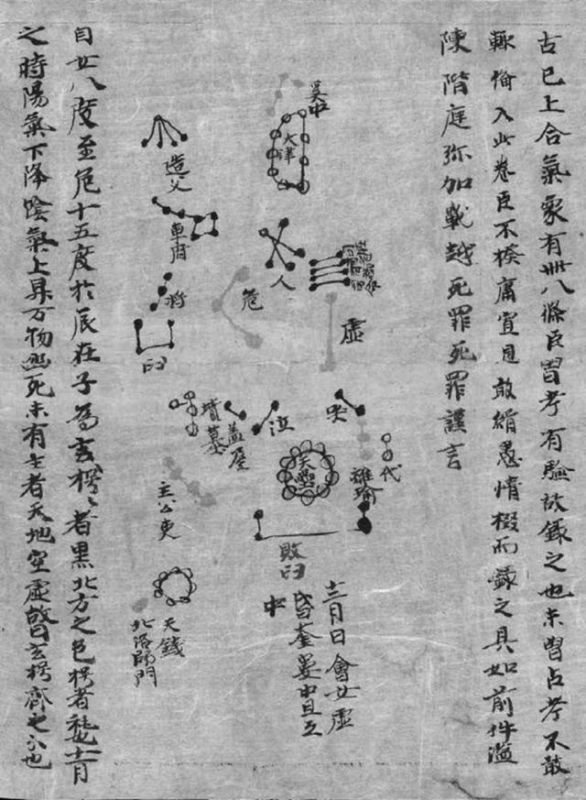 古已上合氣象有卌八條臣曾考有驗故錄之也未曾占考不敢
輒備入此卷臣不揆庸寡見敢緝愚情掇而錄之具如前件滥
陳階庭弥加戰越死罪死罪謹言
天津
虛
人
危
造父
車府
杵
臼
哭
泣
代
離瑜
天壘
蓋屋
墳墓
敗臼
天錢
北落師門
十二月日會女虛
昏奎婁中旦氐
中
自女八度至危十五度於辰在子為玄枵〻者黑北方之色枵者耗也十一月
之時陽氣下降陰氣上昇万物幽死未有生者天地空虛曰玄枵齊之分也